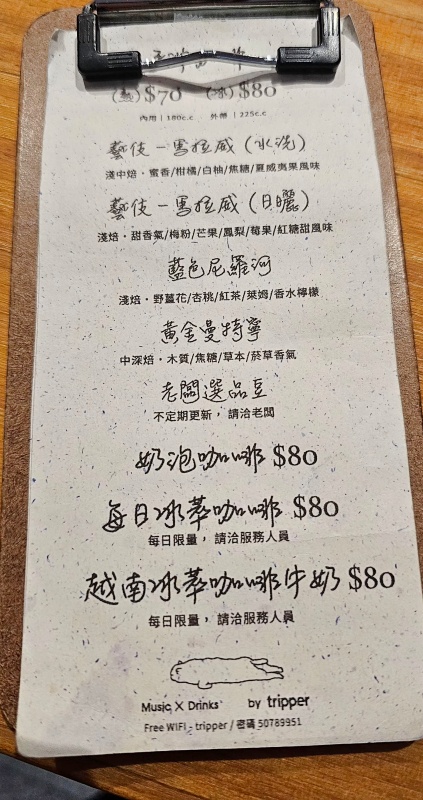 (熱) $70 (冰) $80
內用｜180c.c 外帶｜225c.c
藝伎－馬拉威（水洗）
淺中焙・蜜香/柑橘/白柚/焦糖/夏威夷果風味
藝伎－馬拉威（日曬）
淺焙・甜香氣/梅粉/芒果/鳳梨/莓果/紅糖甜風味
藍色尼羅河
淺焙・野薑花/杏桃/紅茶/萊姆/香水檸檬
黃金曼特寧
中深焙・木質/焦糖/草本/菸草香氣
老闆選品豆
不定期更新，請洽老闆
奶泡咖啡 $80
每日冰萃咖啡 $80
每日限量，請洽服務人員
越南冰萃咖啡牛奶 $80
每日限量，請洽服務人員
Music X Drinks by tripper
Free WIFI - tripper / 密碼 50789951